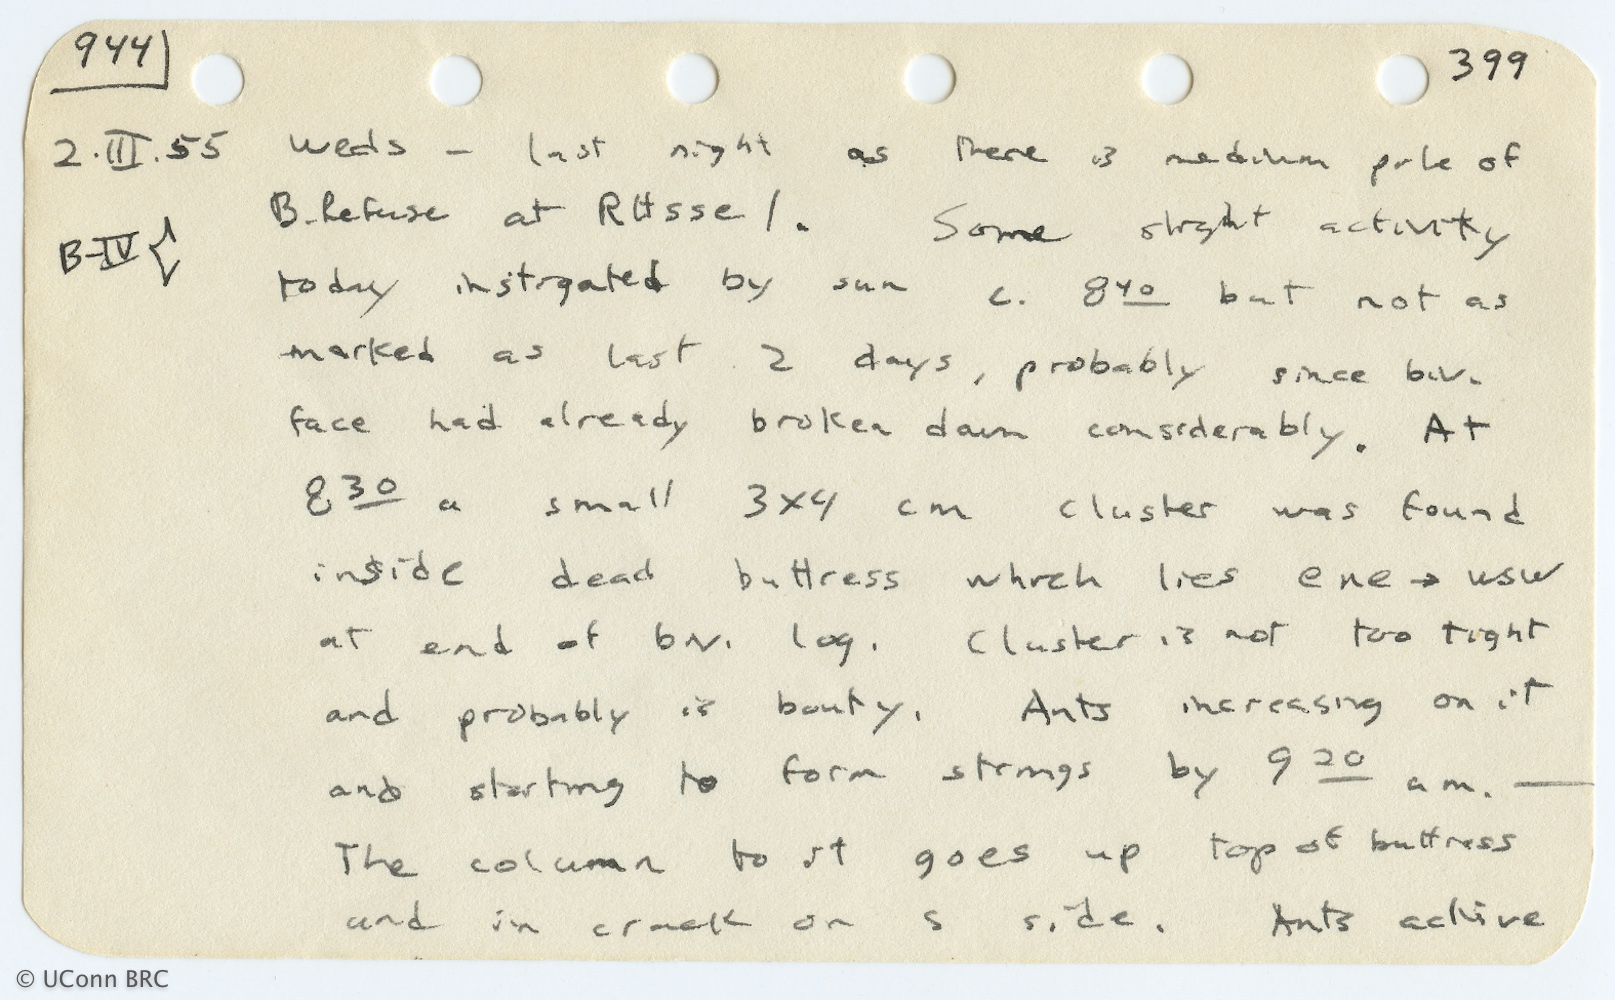 944 399
2.III.55 Weds – last night as there is medium pile of
B-Refuse at RHsse/.  Some slight activity
B-IV { today instigated by sun c. 8 40 but not as
marked as last 2 days, probably since biv.
face had already broken down considerably. At
8 30 a small 3x4 cm cluster was found
inside dead buttress which lies ene → wsw
at end of biv. log. Cluster is not too tight
and probably is booty. Ants increasing on it
and starting to form strings by 9 20 am. —
The column to it goes up top of buttress
and in crack on S side. Ants active
© UConn BRC